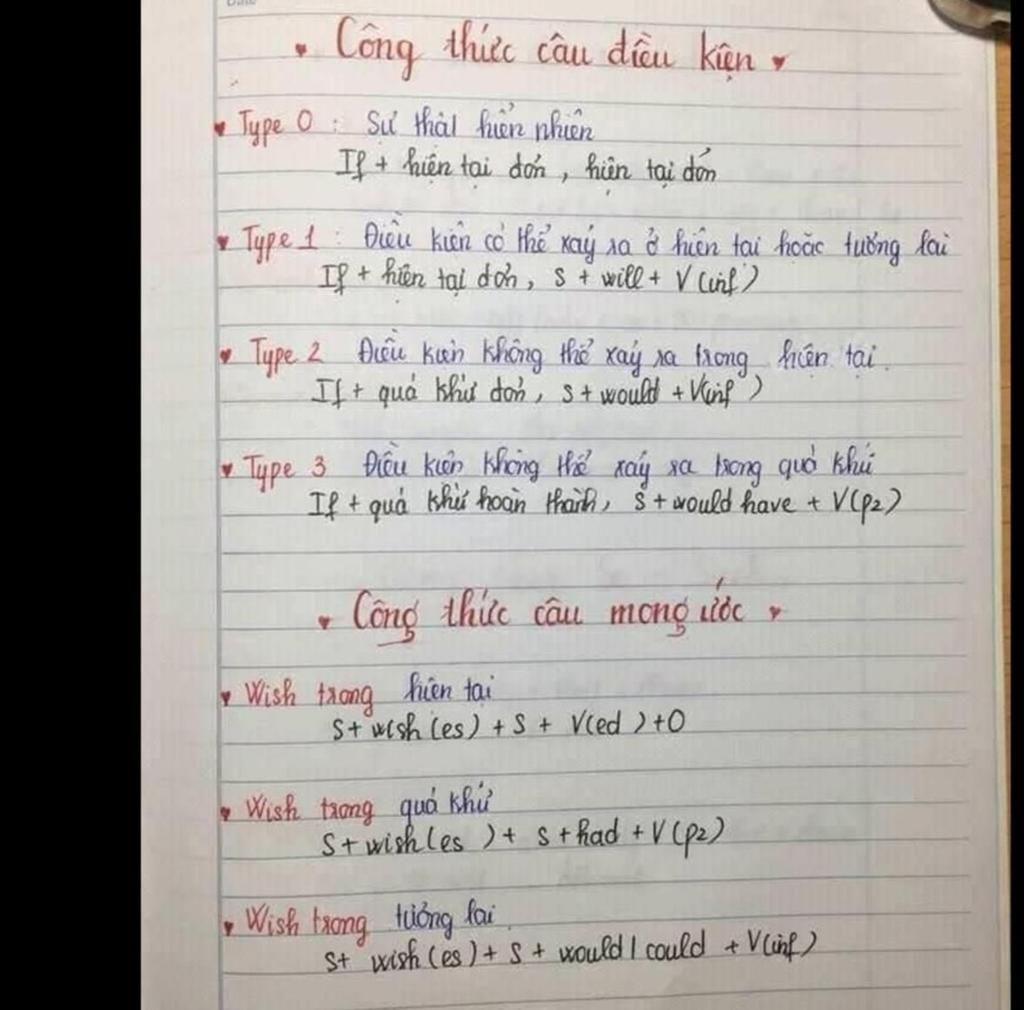 Công thức câu điều kiện
Type 0 : Sự thật hiển nhiên
If + hiện tại đơn, hiện tại đơn
Type 1 : Điều kiện có thể xảy ra ở hiện tại hoặc tương lai
If + hiện tại đơn, S + will + V (inf)
Type 2 Điều kiện không thể xảy ra trong hiện tại.
If + quá khứ đơn, S + would + V(inf)
Type 3 Điều kiện không thể xảy ra trong quá khứ
If + quá khứ hoàn thành, S + would have + V(p2)
Công thức câu mong ước
Wish trong hiện tại
S + wish (es) + S + V(ed) + O
Wish trong quá khứ
S + wish (es) + S + had + V (p2)
Wish trong tương lai
S + wish (es) + S + would / could + V(inf)